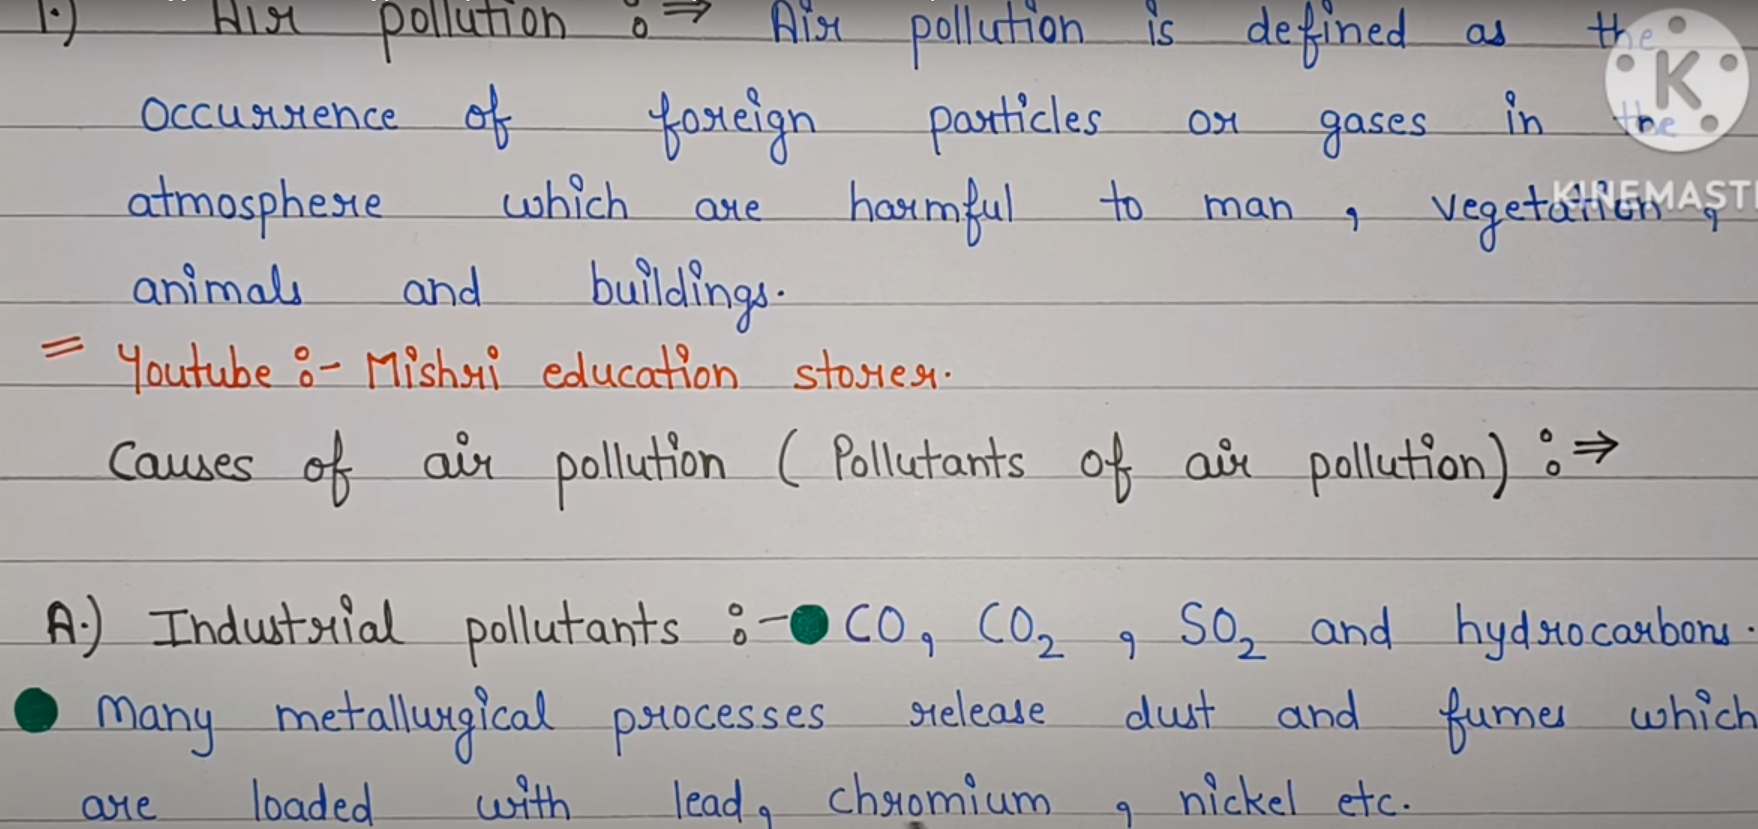 1.) Air pollution :⇒ Air pollution is defined as the
occurrence of foreign particles or gases in the
atmosphere which are harmful to man , vegetation ,
animals and buildings.
= Youtube :- Mishri education storer.
Causes of air pollution ( Pollutants of air pollution) :⇒
A.) Industrial pollutants :- ● CO, CO₂ , SO₂ and hydrocarbons.
● Many metallurgical processes release dust and fumes which
are loaded with lead, chromium , nickel etc.
K
KINEMAST